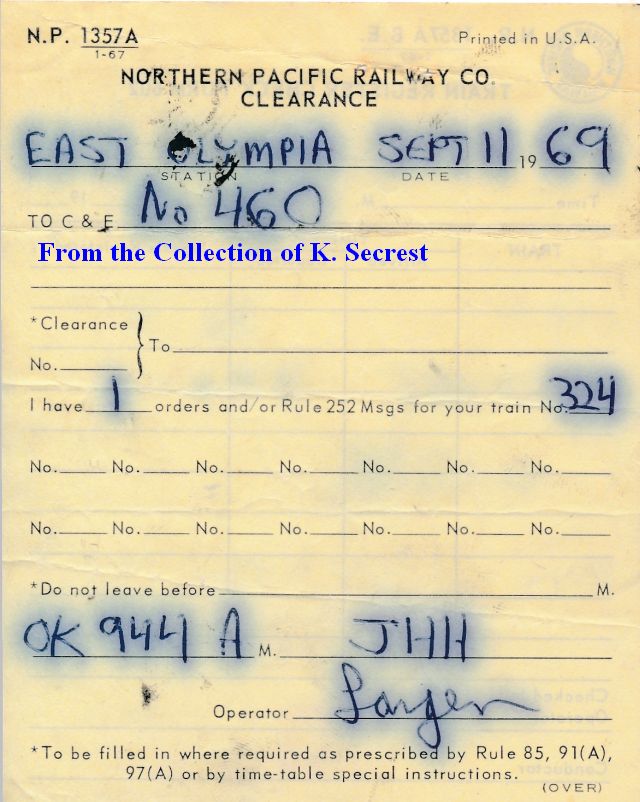 N.P. 1357A
1-67
Printed in U.S.A.
NORTHERN PACIFIC RAILWAY CO.
CLEARANCE
EAST OLYMPIA SEPT 11 19 69
STATION DATE
TO C & E No 460
From the Collection of K. Secrest
*Clearance
No. } To
I have 1 orders and/or Rule 252 Msgs for your train No. 324
No. No. No. No. No. No. No.
No. No. No. No. No. No. No.
*Do not leave before M.
OK 944 A M. JHH
Operator Largen
*To be filled in where required as prescribed by Rule 85, 91(A),
97(A) or by time-table special instructions.
(OVER)